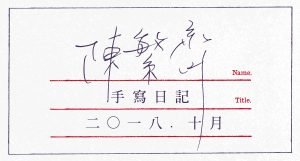 陳繁齊
Name.
手寫日記 Title.
二〇一八．十月